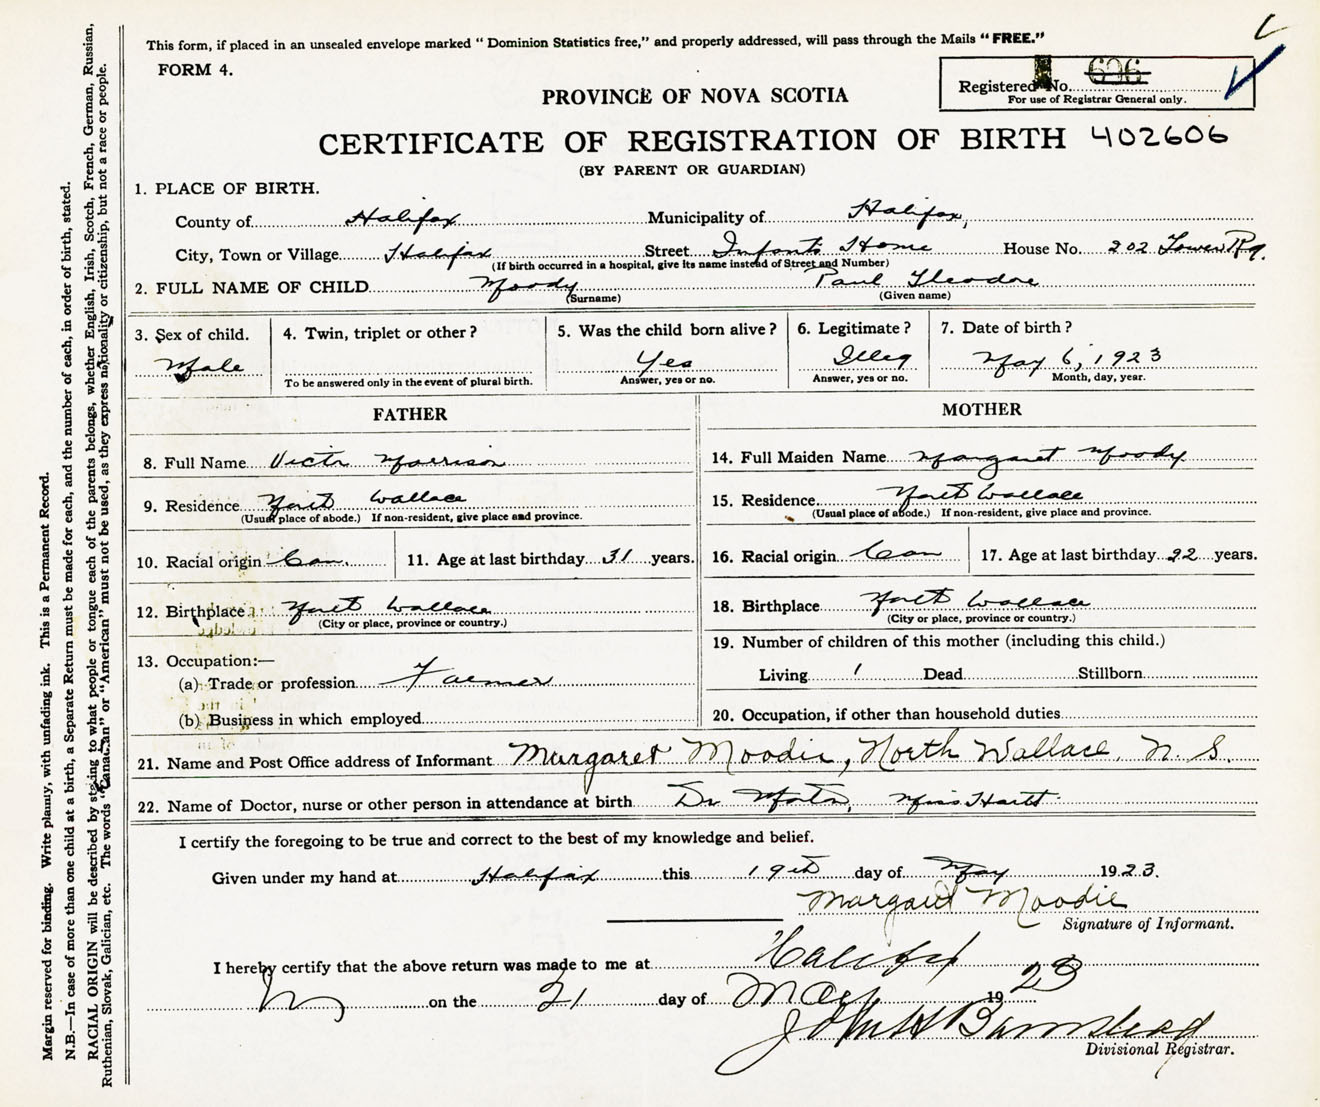 This form, if placed in an unsealed envelope marked " Dominion Statistics free," and properly addressed, will pass through the Mails " FREE."
FORM 4.
Registered No. 696
For use of Registrar General only.
PROVINCE OF NOVA SCOTIA
CERTIFICATE OF REGISTRATION OF BIRTH 402606
(BY PARENT OR GUARDIAN)
1. PLACE OF BIRTH.
County of Halifax Municipality of Halifax,
City, Town or Village Halifax Street Infants Home House No. 202 Tower Rd.
(If birth occurred in a hospital, give its name instead of Street and Number)
2. FULL NAME OF CHILD Moody Paul Theodore
(Surname) (Given name)
3. Sex of child. 4. Twin, triplet or other? 5. Was the child born alive? 6. Legitimate? 7. Date of birth?
Male Yes Illeg May 6, 1923
To be answered only in the event of plural birth. Answer, yes or no. Answer, yes or no. Month, day, year.
FATHER MOTHER
8. Full Name Victr Morrison 14. Full Maiden Name Margaret Moody
9. Residence North Wallace 15. Residence North Wallace
(Usual place of abode.) If non-resident, give place and province. (Usual place of abode.) If non-resident, give place and province.
10. Racial origin Can. 11. Age at last birthday 31 years. 16. Racial origin Can 17. Age at last birthday 22 years.
12. Birthplace North Wallace 18. Birthplace North Wallace
(City or place, province or country.) (City or place, province or country.)
13. Occupation:— 19. Number of children of this mother (including this child.)
(a) Trade or profession Farmer Living 1 Dead Stillborn
(b) Business in which employed 20. Occupation, if other than household duties
21. Name and Post Office address of Informant Margaret Moodie, North Wallace, N. S.
22. Name of Doctor, nurse or other person in attendance at birth Dr Miss Hartt
I certify the foregoing to be true and correct to the best of my knowledge and belief.
Given under my hand at Halifax this 19th day of May 1923.
Margaret Moodie
Signature of Informant.
I hereby certify that the above return was made to me at Halifax
on the 21 day of May 1923
John H Barnstead
Divisional Registrar.
Margin reserved for binding. Write plainly, with unfading ink. This is a Permanent Record.
N.B.—In case of more than one child at a birth, a Separate Return must be made for each, and the number of each, in order of birth, stated.
RACIAL ORIGIN will be described by stating to what people or tongue each of the parents belongs, whether English, Irish, Scotch, French, German, Russian,
Ruthenian, Slovak, Galician, etc. The words "Canadian" or "American" must not be used, as they express nationality or citizenship, but not a race or people.